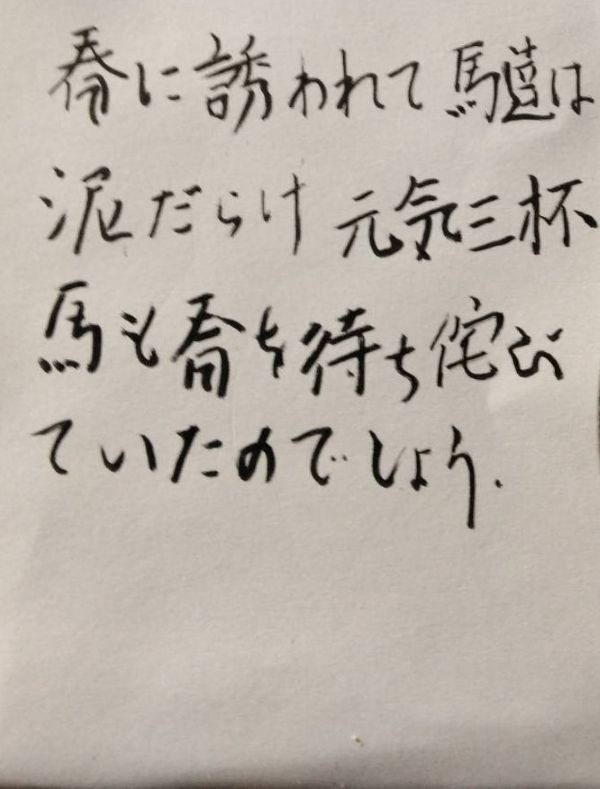 春に誘われて馬道は
泥だらけ 元気三杯
馬も春を待ち侘び
ていたのでしょう.